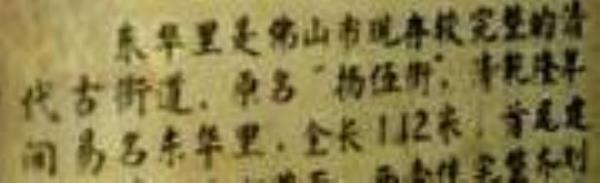 东华里是佛山市现存较完整的清
代古街道，原名“杨伍街”，清乾隆年
间易名东华里，全长112米，首尾建